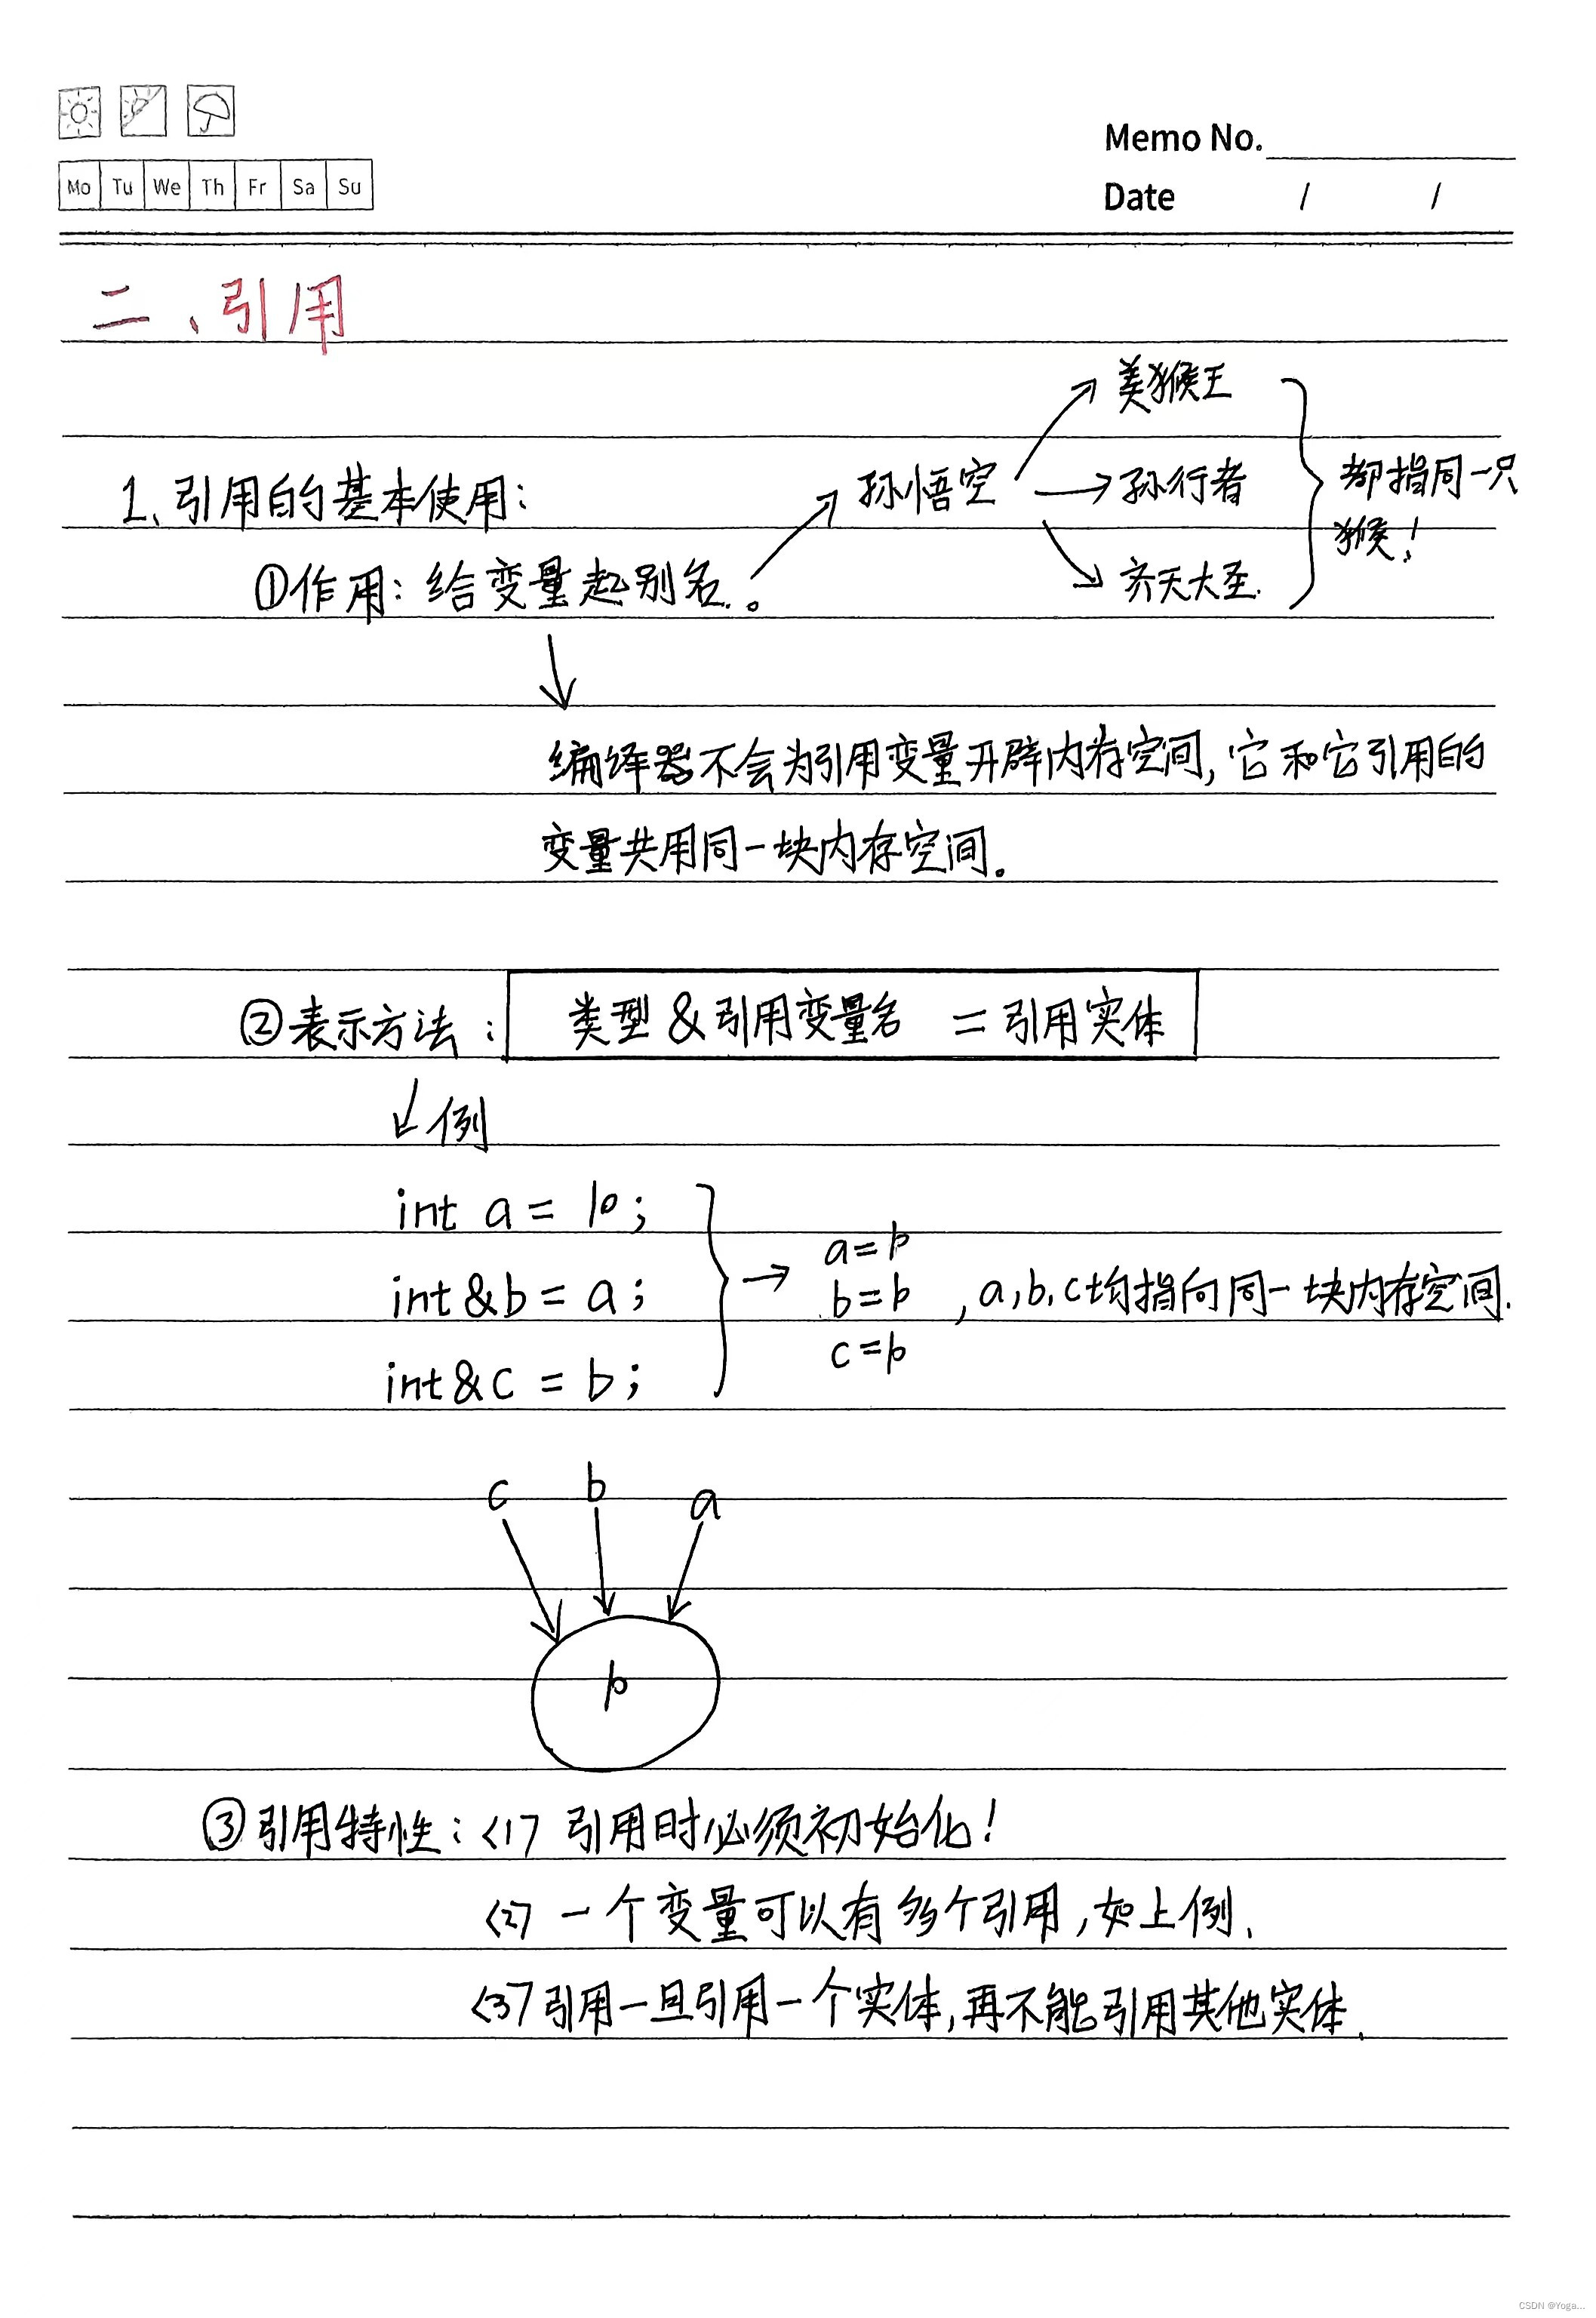 Memo No.
Mo Tu We Th Fr Sa Su
Date / /
二、引用
美猴王
1、引用的基本使用：
孙悟空
孙行者
都指同一只
猴！
①作用：给变量起别名。
齐天大圣.
编译器不会为引用变量开辟内存空间，它和它引用的
变量共用同一块内存空间。
②表示方法：
类型 & 引用变量名 = 引用实体
例
int a = 10;
a=10
int &b = a;
b=10
,a,b,c均指向同一块内存空间.
c=10
int &c = b;
c b a
10
③引用特性：<1> 引用时必须初始化！
<2> 一个变量可以有多个引用，如上例.
<3> 引用一旦引用一个实体，再不能引用其他实体.
CSDN @Yoga...